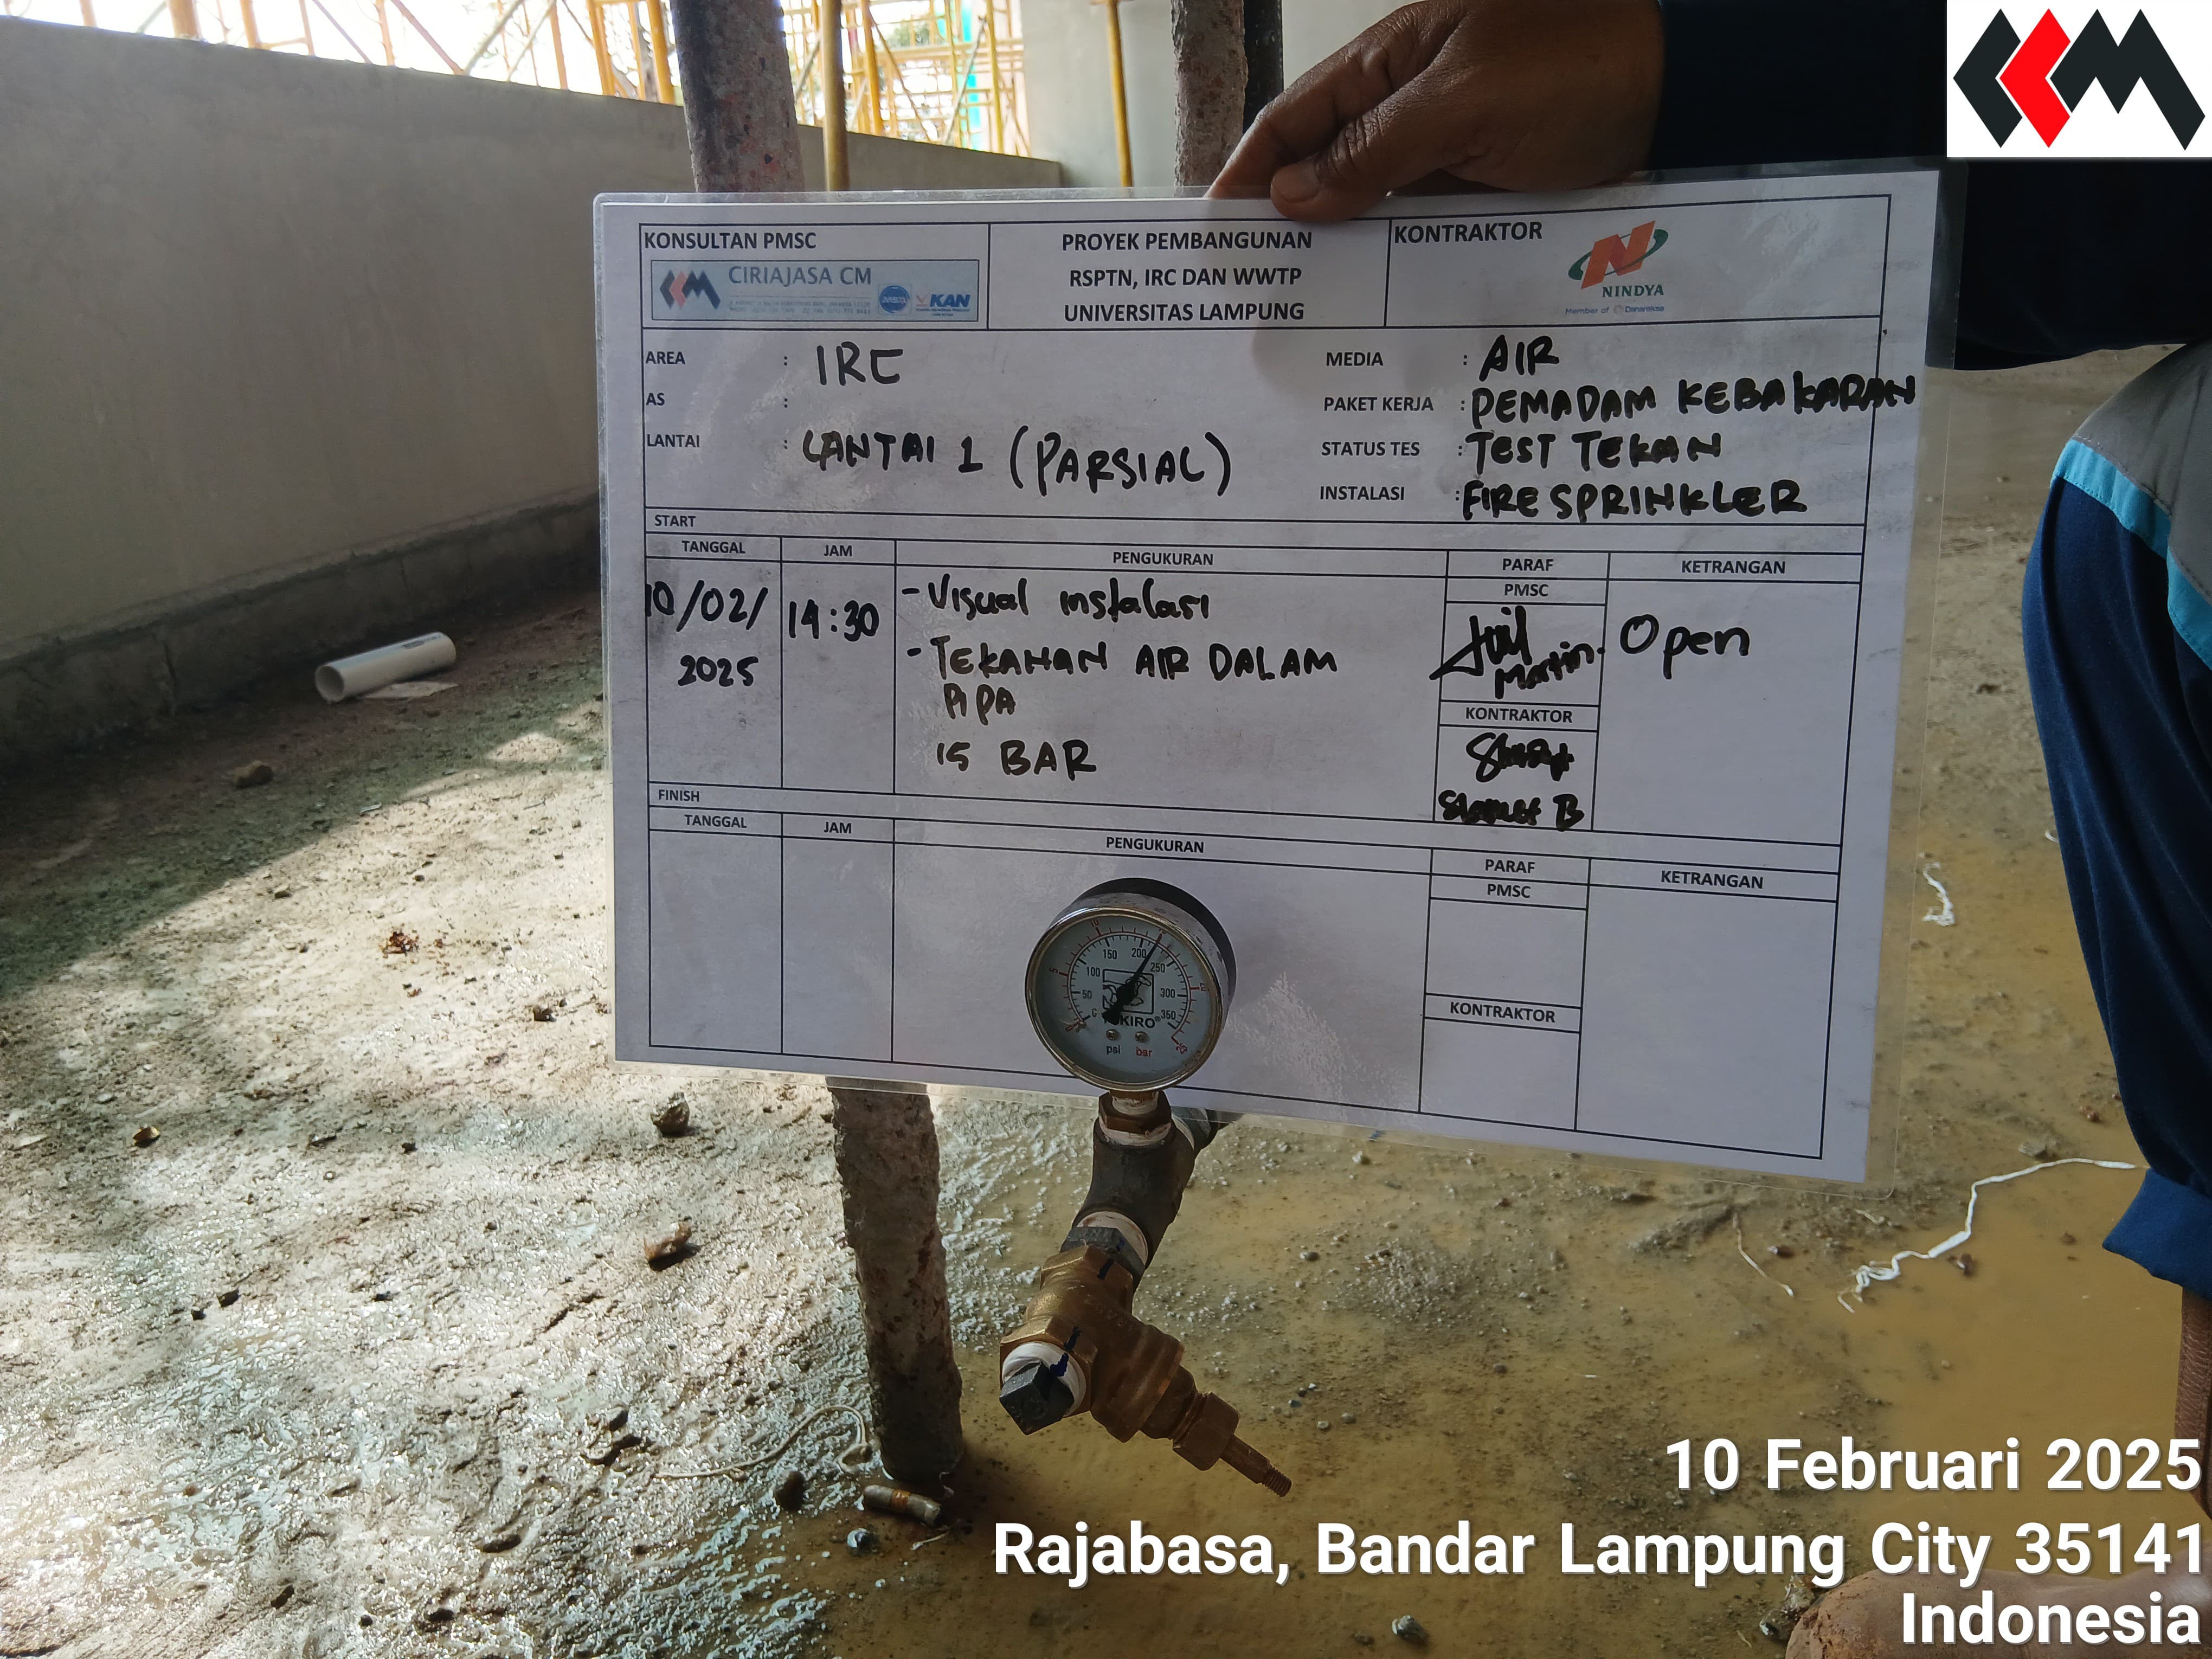 KONSULTAN PMSC
CIRIAJASA CM
KAN
PROYEK PEMBANGUNAN
RSPTN, IRC DAN WWTP
UNIVERSITAS LAMPUNG
KONTRAKTOR
NINDYA
Member of Danareksa
AREA : IRC
AS :
LANTAI : LANTAI 1 (PARSIAL)
MEDIA : AIR
PAKET KERJA : PEMADAM KEBAKARAN
STATUS TES : TEST TEKAN
INSTALASI : FIRE SPRINKLER
START
TANGGAL JAM PENGUKURAN PARAF KETRANGAN
PMSC
10/02/
2025
14:30
- Visual instalasi
- TEKANAN AIR DALAM
PIPA
15 BAR
Open
KONTRAKTOR
Slamet B
FINISH
TANGGAL JAM PENGUKURAN PARAF KETRANGAN
PMSC
KONTRAKTOR
50 100 150 200 250 300 350
psi bar
10 Februari 2025
Rajabasa, Bandar Lampung City 35141
Indonesia